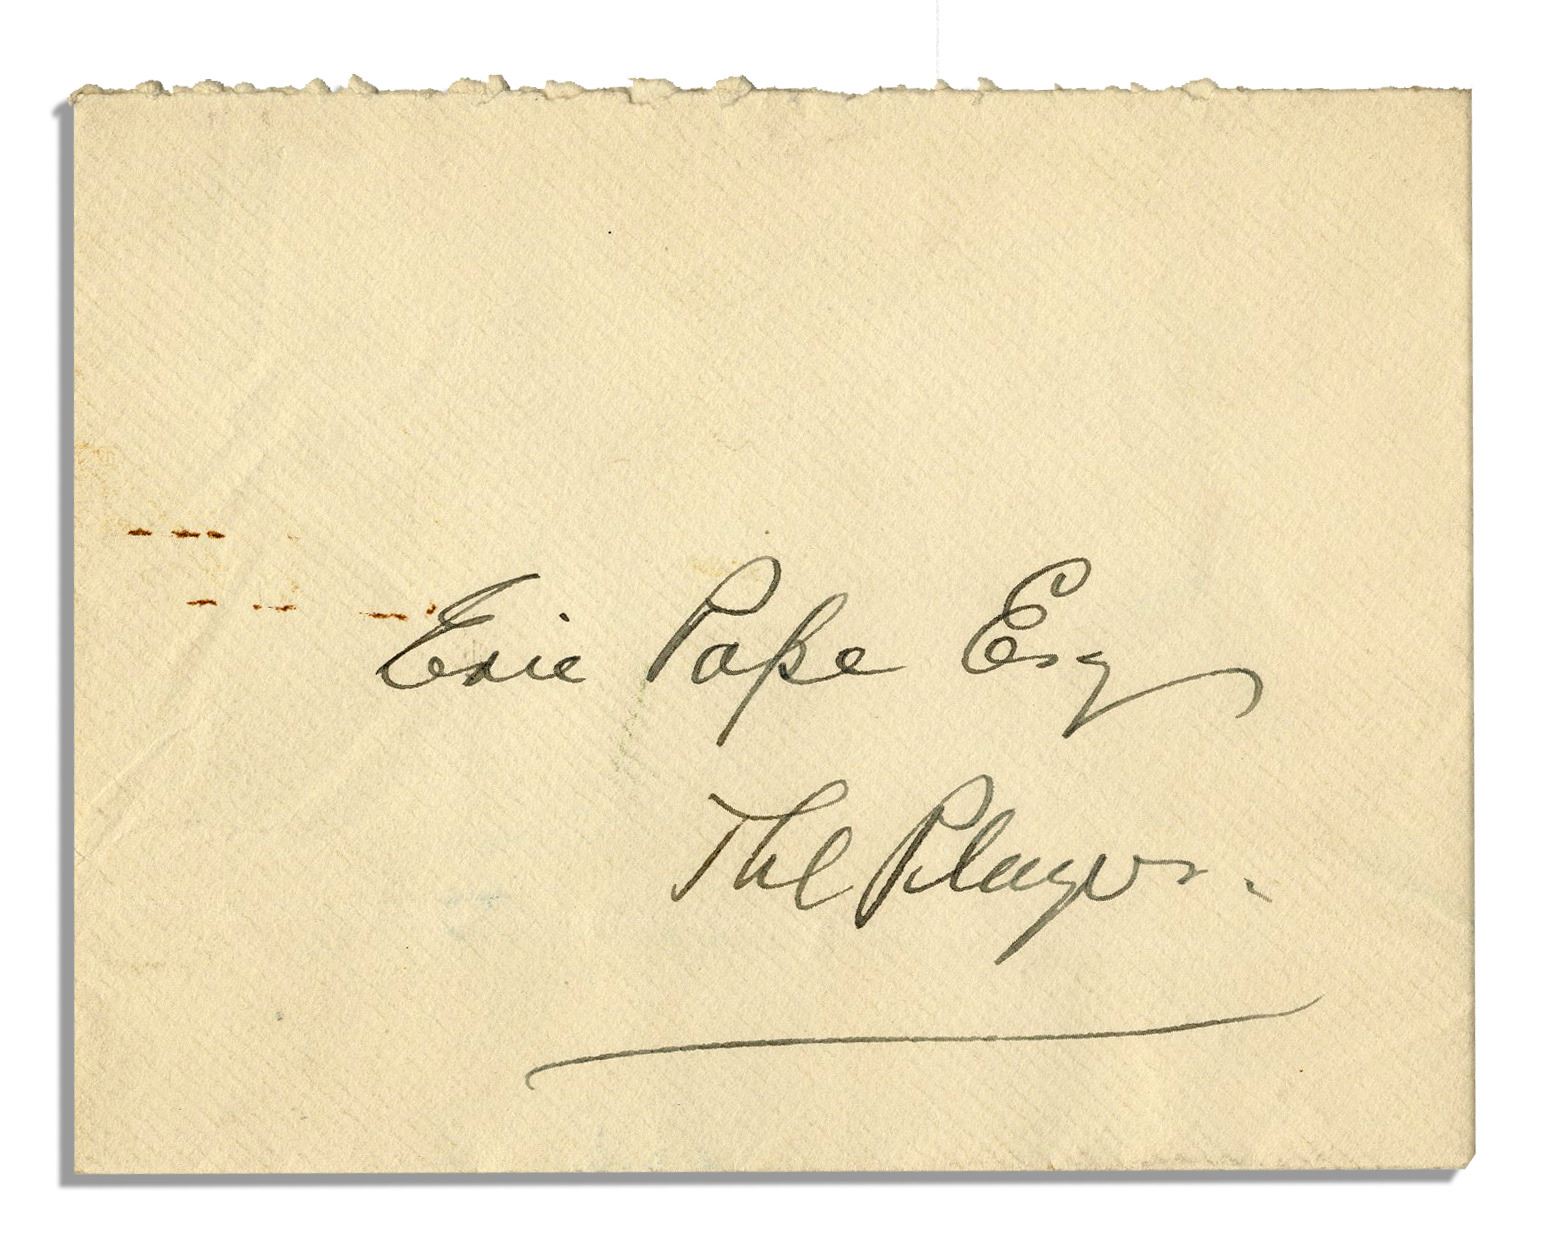 Eric Pape Esq
The Players.